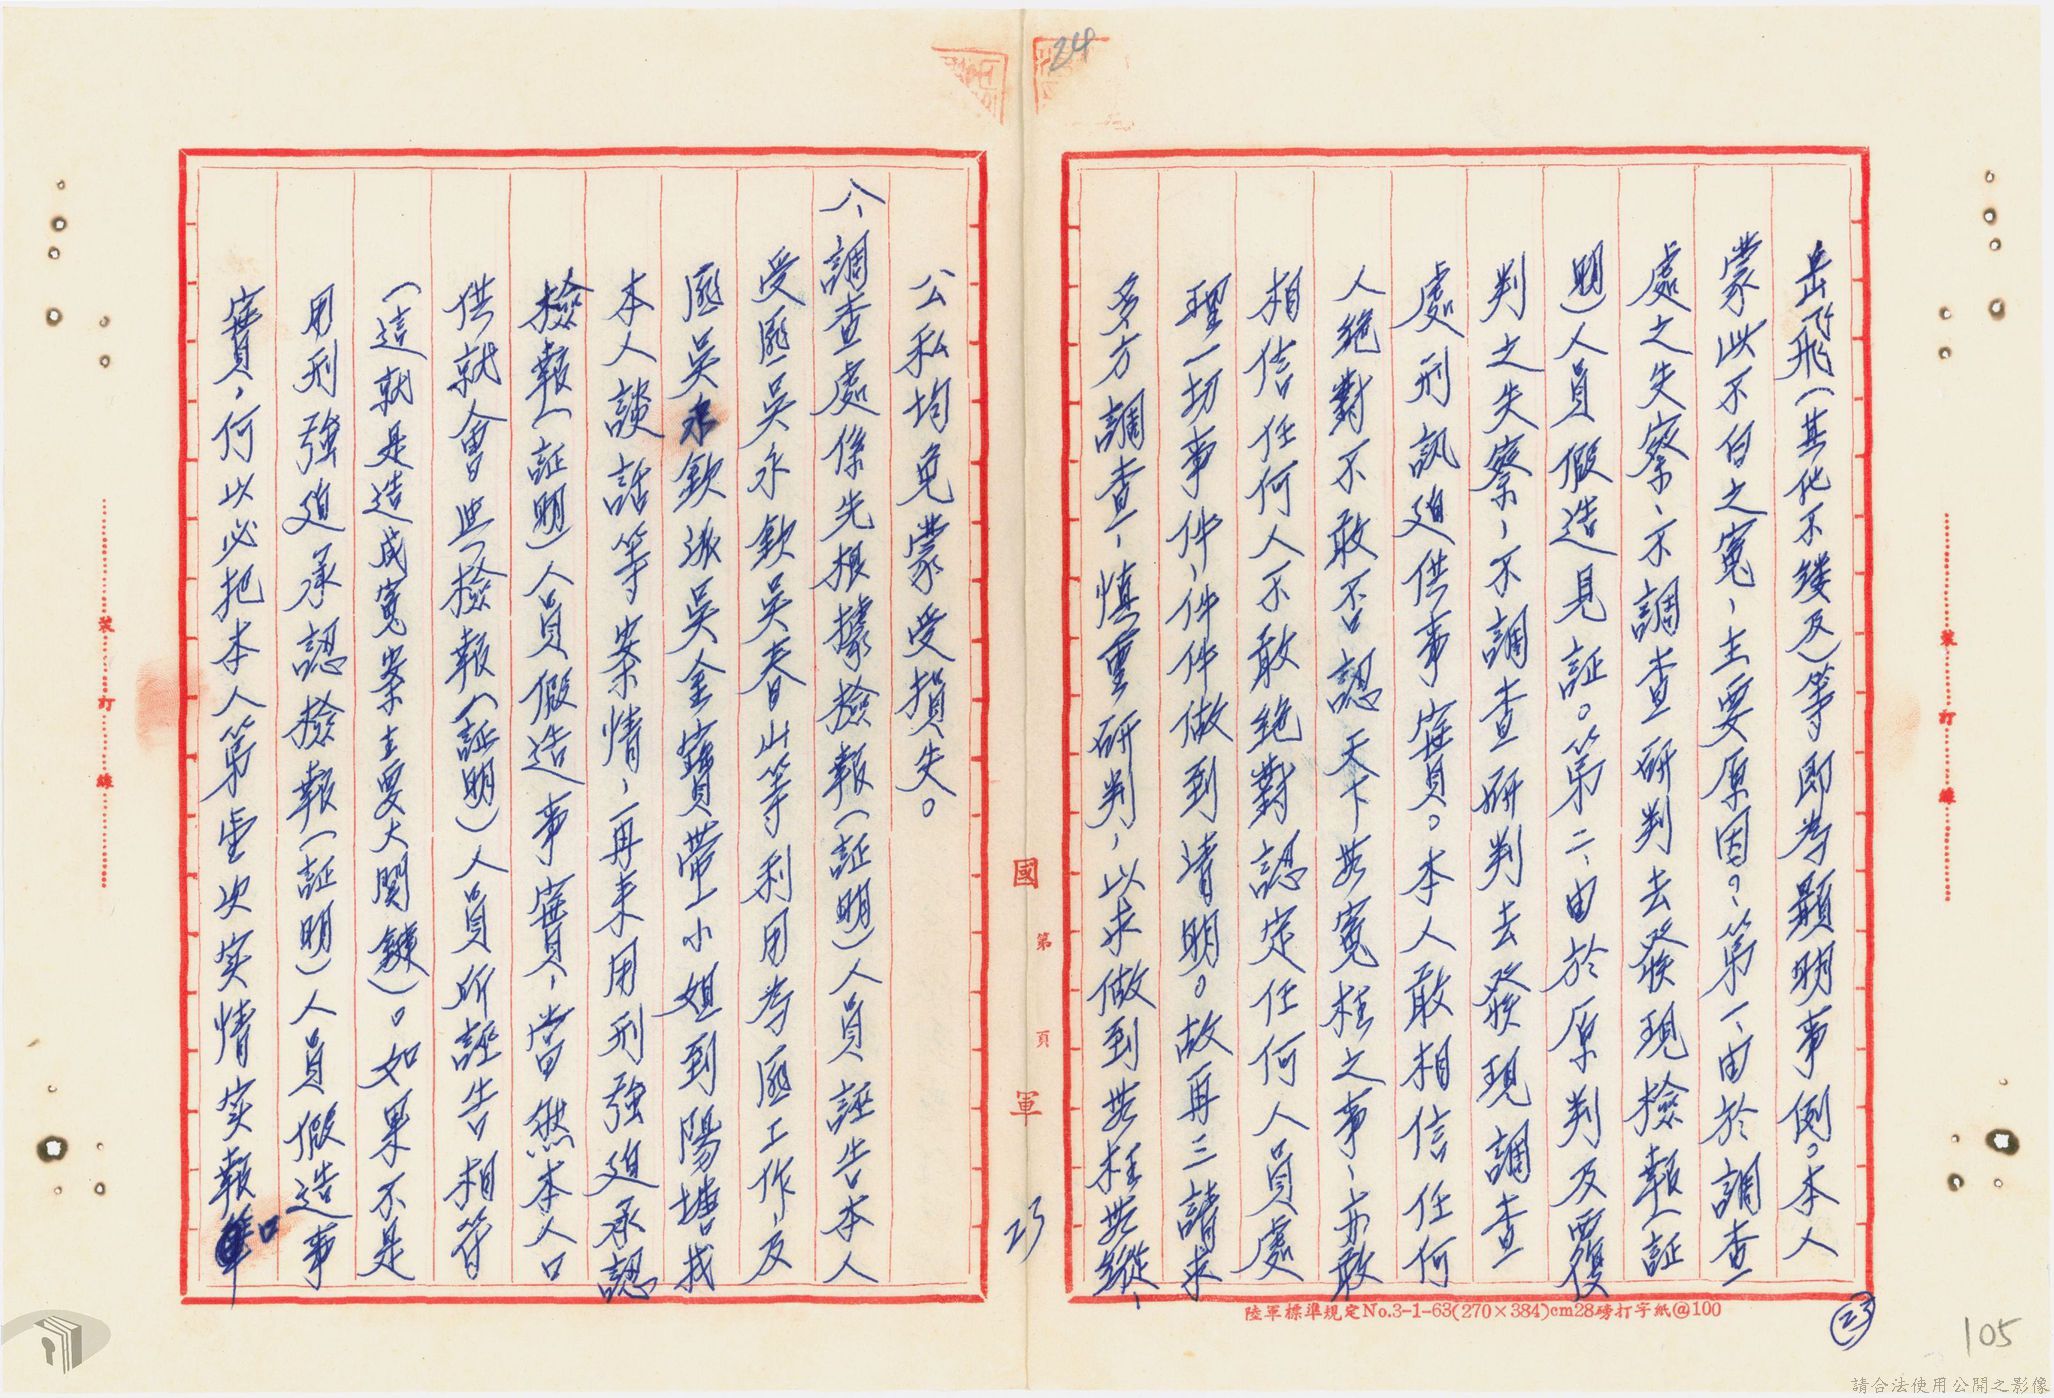 岳飛(其他不縷及)等即為顯明事例。本人
蒙此不白之寃,主要原因。第一、由於調查
處之失察、不調查研判去發現檢報(証
明)人員假造見証。第二、由於原判及覆
判之失察、不調查研判去發現調查
處刑訊迫供事實。本人敢相信任何
人絕對不敢否認天下無寃枉之事、亦敢
相信任何人不敢絕對認定任何人員處
理一切事件、件件做到清明。故再三請求
多方調查、慎重研判,以求做到無枉無縱、
公私均免蒙受損失。
八、調查處係先根據檢報(証明)人員誣告本人
受匪吳永欽吳春山等利用為匪工作,及
匪吳永欽派吳金寶帶小姐到陽塘找
本人談話等案情,再來用刑強迫承認
檢報(証明)人員假造事實,當然本人口
供就會與檢報(証明)人員所誣告相符
(這就是造成寃案主要大関鍵)。如果不是
用刑強迫承認檢報(証明)人員假造事
實,何以必把本人第壹次实情实報
國軍
第 頁
23
24
㉓
105
裝訂線
裝訂線
陸軍標準規定No.3-1-63(270×384)cm28磅打字紙@100
請合法使用公開之影像